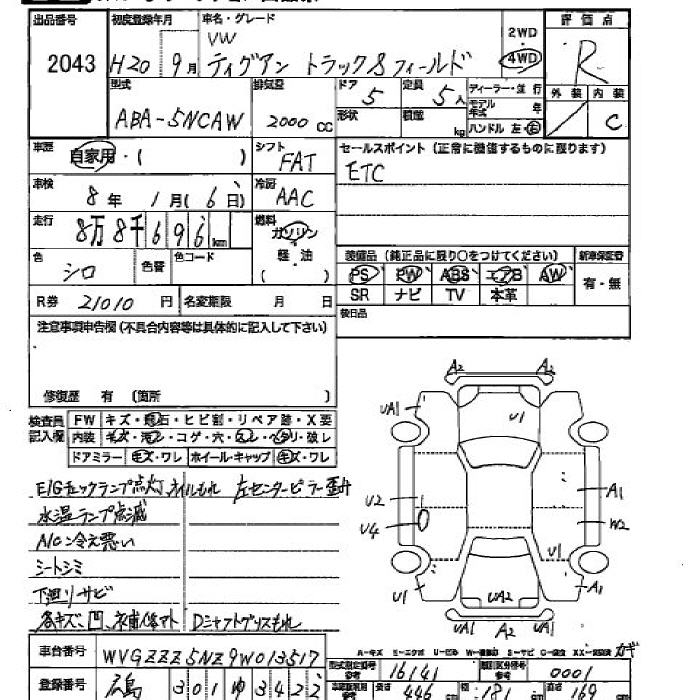 出品番号 初度登録年月 車名・グレード 評価点
2043 H20 9月 VW 2WD R
ティグアン トラック&フィールド 4WD
型式 排気量 ドア 定員 ディーラー・並行 外装 内装
ABA-5NCAW 2000cc 5 5人 モデル年式 年 C
形状 積載 kg ハンドル 左・右
車歴 自家用・( ) シフト FAT セールスポイント(正常に機能するものに限ります)
ETC
車検 8年 1月(6日) 冷房 AAC
走行 8万8千696km 燃料 ガソリン
軽油
( )
色 シロ 色替 色コード
装備品(純正品に限り○をつけてください) 新車保証書
PS PW ABS エアB AW 有・無
SR ナビ TV 本革
R券 21010円 名変期限 月 日 後日品
注意事項申告欄(不具合内容等は具体的に記入して下さい)
修復歴 有 (箇所 )
検査員記入欄 FW キズ・飛石・ヒビ割・リペア跡・X要
内装 キズ・汚れ・コゲ・穴・スレ・ヘタリ・破レ
ドアミラー キズ・ワレ ホイール・キャップ キズ・ワレ
E/Gチェックランプ点灯、オイルもれ 左センターピラー歪み
水温ランプ点滅
A/C冷え悪い
シートシミ
下廻リサビ
各キズ、凹、補修 Dシャフトグリスもれ
A2 A2
UA1 U1
U2 A1
U4 W2
U1 U1 A1
UA2
UA1 A2 UA1
車台番号 WVGZZZ5NZ9W013517
型式指定番号 16141 類別区分番号 0001
登録番号 広島 301 ゆ 3422
長さ 446cm 幅 181cm 高さ 169cm